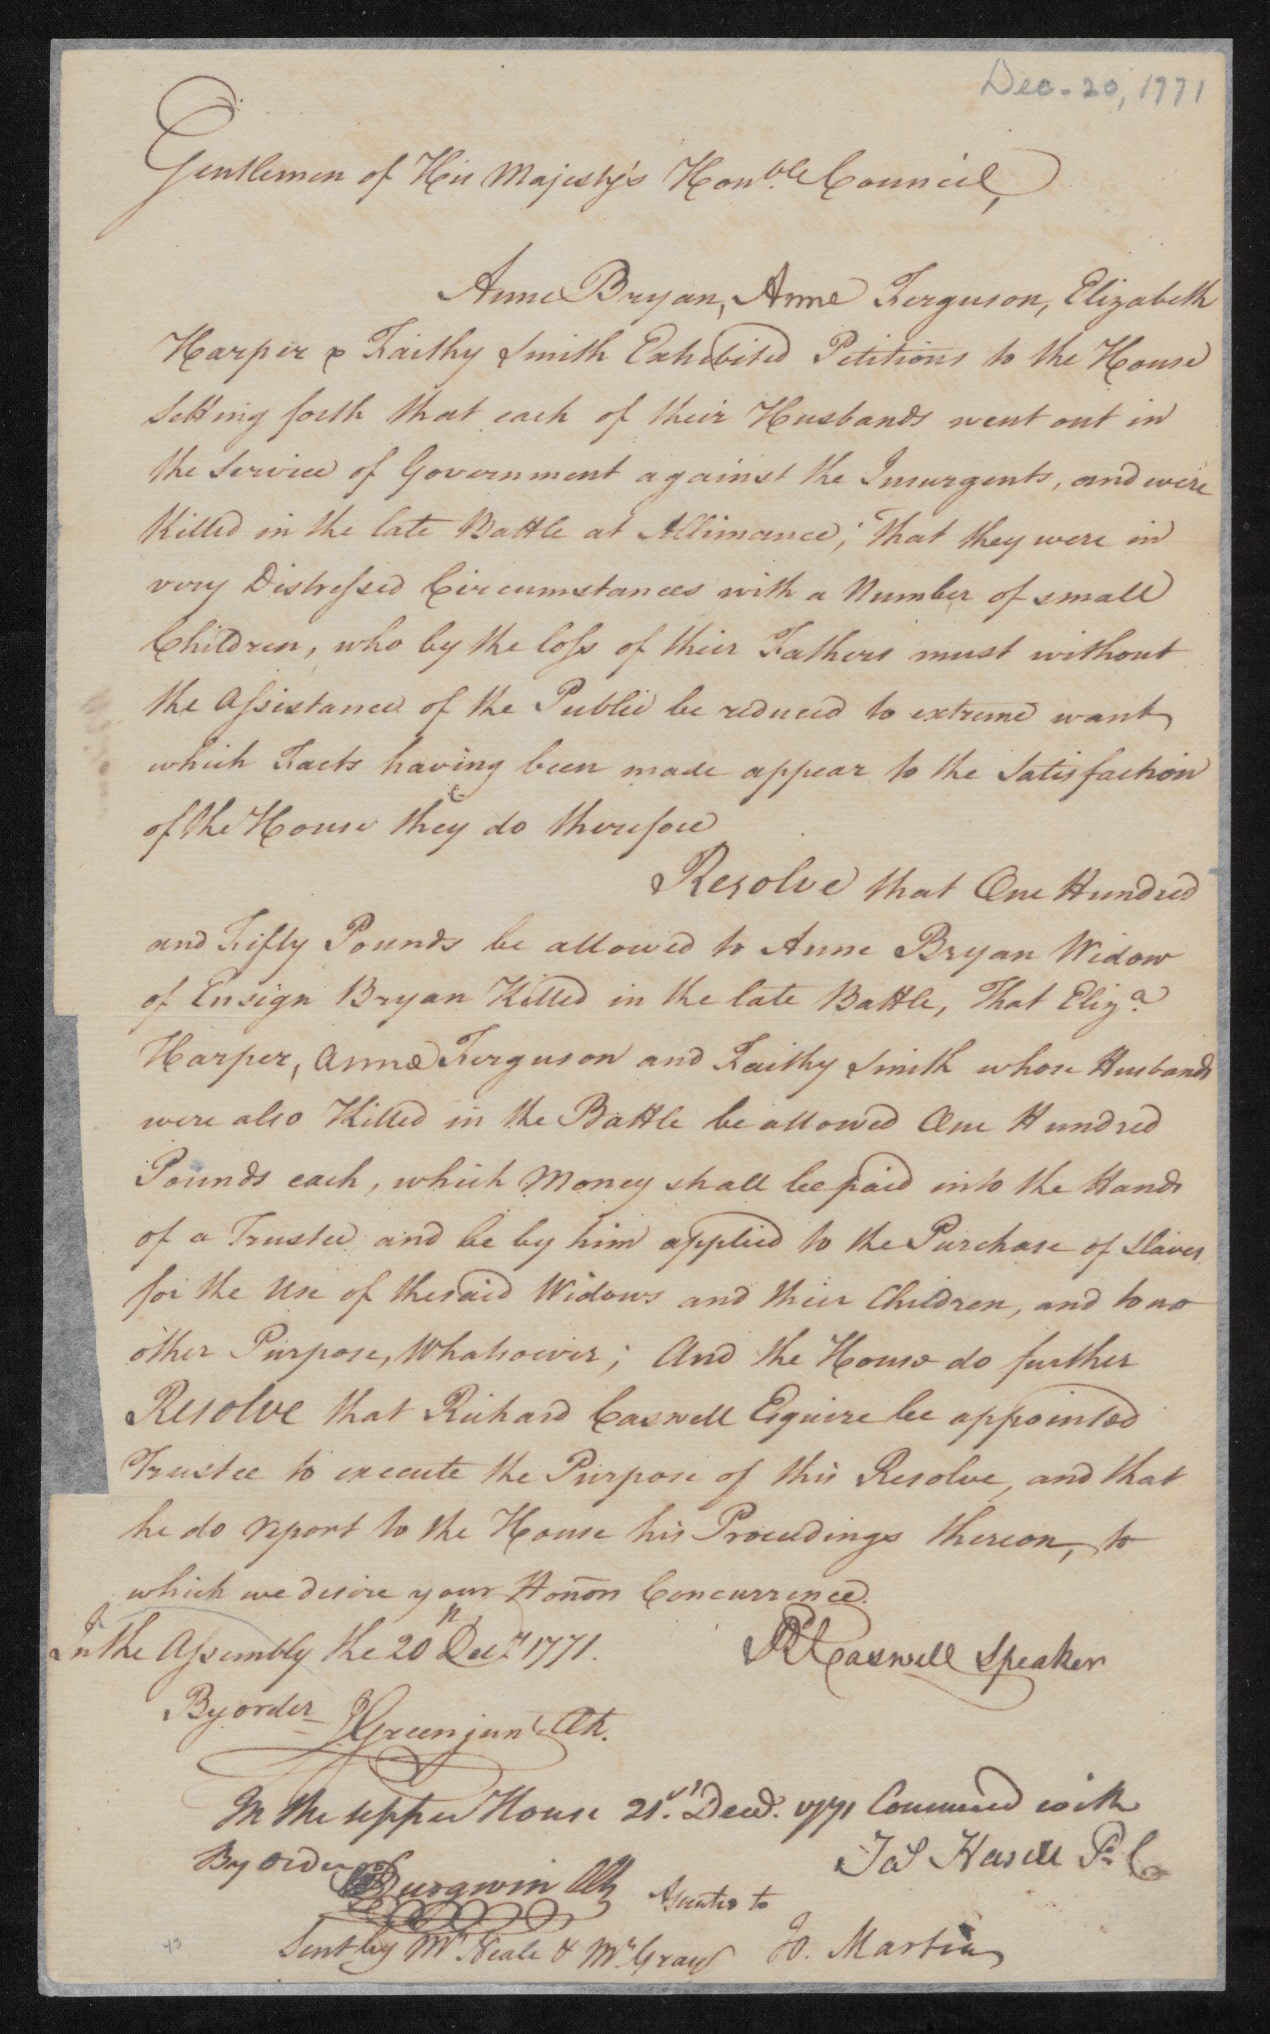 Dec. 20, 1771
Gentlemen of His Majesty's Honble Council,
Anne Bryan, Anne Ferguson, Elizabeth
Harper & Faithy Smith Exhibited Petitions to the House
Setting forth that each of their Husbands went out in
the Service of Government against the Insurgents, and were
Killed in the late Battle at Allimance; That they were in
very Distressed Circumstances with a Number of small
Children, who by the loss of their Fathers must without
the Assistance of the Public be reduced to extreme want
which Facts having been made appear to the Satisfaction
of the House they do therefore
Resolve that One Hundred
and Fifty Pounds be allowed to Anne Bryan Widow
of Ensign Bryan Killed in the late Battle, That Eliza
Harper, Anne Ferguson and Faithy Smith whose Husbands
were also Killed in the Battle be allowed One Hundred
Pounds each, which Money shall be paid into the Hands
of a Trustee and be by him applied to the Purchase of Slaves
for the Use of the said Widows and their Children, and to no
other Purpose, Whatsoever; And the House do further
Resolve that Richard Caswell Esquire be appointed
Trustee to execute the Purpose of this Resolve, and that
he do report to the House his Proceedings thereon, to
which we desire your Honors Concurrence.
In the Assembly the 20th Decr 1771.
R Caswell Speaker
By order
J Green junr Clk.
In the upper House 21st Decr. 1771 Concurred with
By order
Jas Hasell P. C
Burgwin Clk
Assented to
Sent by Mr Neale & Mr Gray
Jo. Martin
43